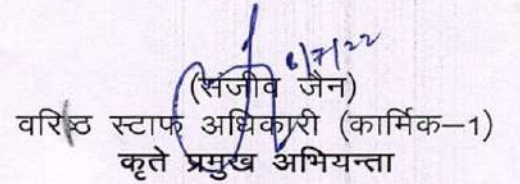 6/7/22
(संजीव जैन)
वरिष्ठ स्टाफ अधिकारी (कार्मिक–1)
कृते प्रमुख अभियन्ता